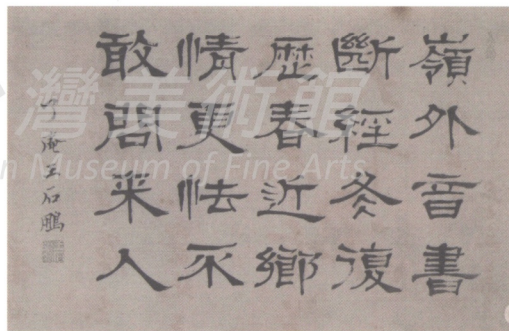 嶺外音書
斷經冬復
歷春近鄉
情更怯不
敢問來人
王石鵬
灣美術館
n Museum of Fine Arts